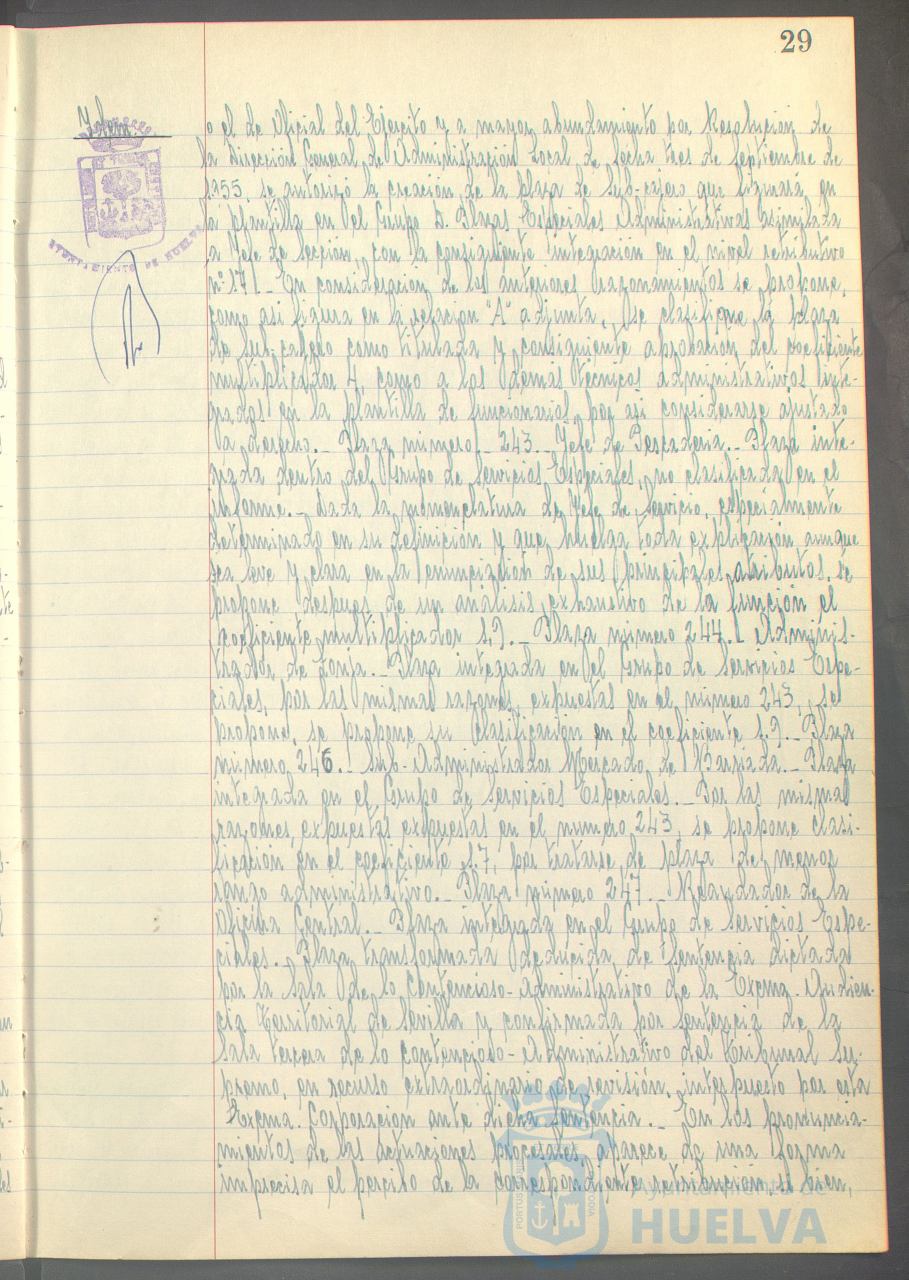 29
Idem
o el de Oficial del Ejército y a mayor abundamiento por Resolución de
la Dirección General de Administración Local de fecha tres de Septiembre de
1.955 se autorizó la creación de la plaza de Sub-cajero que figurará en
la plantilla en el Grupo D. Plazas Especiales Administrativas asimilada
a Jefe de Sección, con la consiguiente integración en el nivel retributivo
nº 17. - En consideración de los anteriores razonamientos se propone,
como así figura en la relación "A" adjunta, se clasifique la plaza
de Sub-cajero como titulada y consiguiente aprobación del coeficiente
multiplicador 4, como a los demás técnicos administrativos inte-
grados en la plantilla de funcionarios, por así considerarse ajustado
a derecho.- Plaza número 243.- Jefe de Pescadería.- Plaza inte-
grada dentro del Grupo de Servicios Especiales, no clasificada en el
informe.- Dada la nomenclatura de Jefe de Servicio, especialmente
determinado en su definición y que huelga toda explicación aunque
sea leve y clara en la enunciación de sus principales atributos, se
propone después de un análisis exhaustivo de la función el
coeficiente multiplicador 1.9.- Plaza número 244.- Adminis-
trador de Lonja.- Plaza integrada en el Grupo de Servicios Espe-
ciales, por las mismas razones, expuestas en el número 243, se
propone, se propone su clasificación en el coeficiente 1.9.- Plaza
número 246.- Sub-Administrador Mercado de Barriada.- Plaza
integrada en el Grupo de Servicios Especiales.- Por las mismas
razones expuestas expuestas en el número 243, se propone clasi-
ficación en el coeficiente 1.7, por tratarse de plaza de menor
rango administrativo.- Plaza número 247.- Recaudador de la
Oficina Central.- Plaza integrada en el Grupo de Servicios Espe-
ciales. Plaza transformada deducida de Sentencia dictada
por la Sala de lo Contencioso-Administrativo de la Excma. Audien-
cia Territorial de Sevilla y confirmada por sentencia de la
Sala tercera de lo contencioso-administrativo del Tribunal Su-
premo, en recurso extraordinario de revisión, interpuesto por esta
Excma. Corporación ante dicha sentencia.- En los pronuncia-
mientos de las actuaciones procesales, aparece de una forma
imprecisa el percibo de la correspondiente retribución, si bien,
AYUNTAMIENTO DE HUELVA
Ayuntamiento de
HUELVA